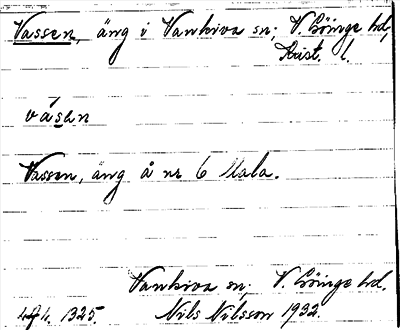 Vassen, äng i Vankiva sn; V. Göinge hd,
Krist. l.
vásen
Vassen, äng å nr 6 Mala.
Vankiva sn; V. Göinge hd.
1325. Nils Nilsson 1932.